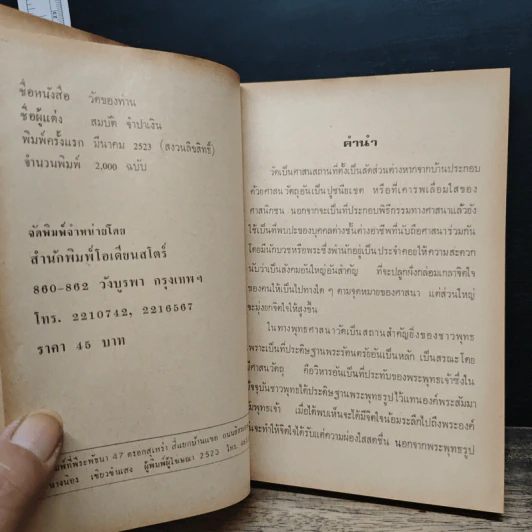 ชื่อหนังสือ วัดของท่าน
ชื่อผู้แต่ง สมบัติ จำปาเงิน
พิมพ์ครั้งแรก มีนาคม 2523 (สงวนลิขสิทธิ์)
จำนวนพิมพ์ 2,000 ฉบับ
จัดพิมพ์จำหน่ายโดย
สำนักพิมพ์โอเดียนสโตร์
860-862 วังบูรพา กรุงเทพฯ
โทร. 2210742, 2216567
ราคา 45 บาท
พิมพ์ที่พีระพัธนา 47 ตรอกสุเหร่า สี่แยกบ้านแขก
ผู้พิมพ์ผู้โฆษณา 2523 โทร.
คำนำ
วัดเป็นศาสนสถานที่ตั้งเป็นสัดส่วนต่างหากจากบ้านประกอบ
ด้วยศาสนวัตถุอันเป็นปูชนียเขต หรือที่เคารพเลื่อมใสของ
ศาสนิกชน นอกจากจะเป็นที่ประกอบพิธีกรรมทางศาสนาแล้วยัง
ใช้เป็นที่พบปะของบุคคลต่างชั้นต่างอาชีพที่นับถือศาสนาร่วมกัน
โดยมีนักบวชหรือพระซึ่งพำนักอยู่เป็นประจำคอยให้ความสะดวก
นับว่าเป็นสังคมอันใหญ่อันสำคัญ ที่จะปลูกฝังกล่อมเกลาจิตใจ
ของคนให้เป็นไปทางใด ๆ ตามจุดหมายของศาสนา แต่ส่วนใหญ่
จะมุ่งยกจิตใจให้สูงขึ้น
ในทางพุทธศาสนาวัดเป็นสถานสำคัญยิ่งของชาวพุทธ
เพราะเป็นที่ประดิษฐานพระรัตนตรัยอันเป็นหลัก เป็นสรณะโดย
มีศาสนวัตถุ คือวิหารอันเป็นที่ประทับของพระพุทธเจ้าซึ่งใน
ปัจจุบันชาวพุทธได้ประดิษฐานพระพุทธรูปไว้แทนองค์พระสัมมา
สัมพุทธเจ้า เมื่อได้พบเห็นจะได้มีจิตใจน้อมระลึกไปถึงพระองค์
จะทำให้จิตใจได้รับแต่ความผ่องใสสดชื่น นอกจากพระพุทธรูป